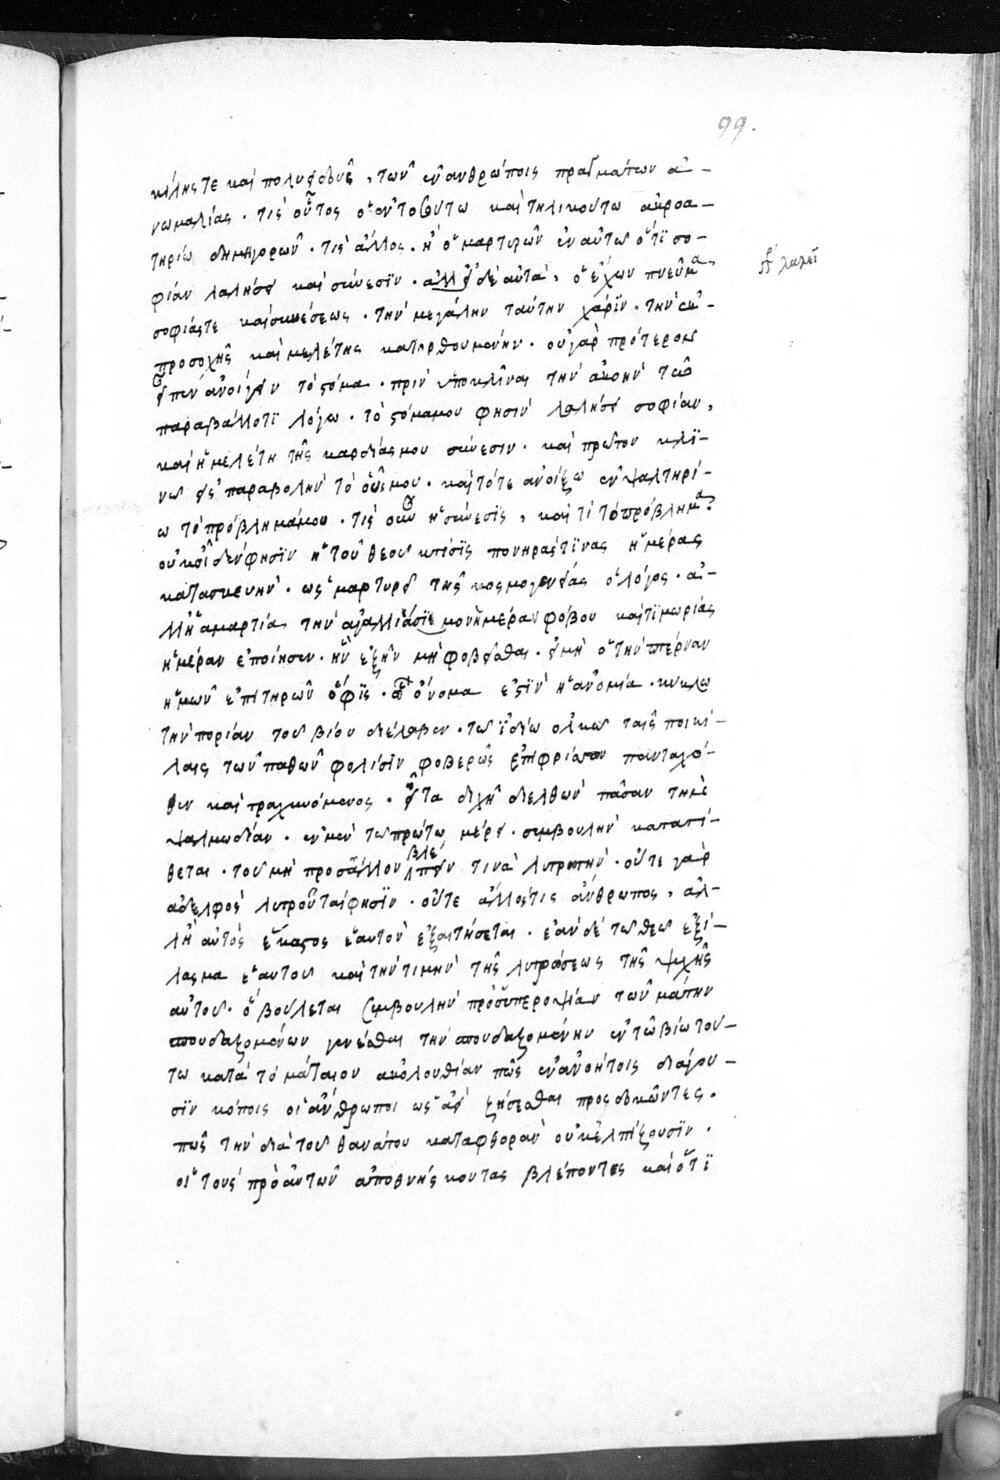 99.
κίλης τε καὶ πολυειδοῦς, τῶν ἐν ἀνθρώποις πραγμάτων ἀ-
νωμαλίας. τίς οὗτος ὁ ἐν τοσούτω καὶ τηλικούτω ἀκροα-
τηρίω δημηγορῶν. τίς ἄλλος. ἢ ὁ μαρτυρῶν ἑαυτῶ ὅτι σο-
φίαν λαλήσει καὶ σύνεσϊν. ἀλλ' εἰ δὲ αὐτὰ, ὁ ἔχων πνεῦμα
ἃ λαλεῖ
σοφίας τε καὶ συνέσεως. τὴν μεγάλην ταύτην χάρϊν. τὴν ἐκ
προσοχῆς καὶ μελέτης κατορθουμένην. οὐ γὰρ πρότερον
εἶπεν ἀνοίγειν τὸ στόμα. πρὶν ὑποκλῖναι τὴν ἀκοὴν τῶ
παραβάλλοντι λόγω. τὸ στόμα μου φησὶν λαλήσει σοφίαν,
καὶ ἡ μελέτη τῆς καρδίας μου σύνεσιν. καὶ πρῶτον κλϊ-
νῶ εἰς παραβολὴν τὸ οὖς μου. καὶ τότε ἀνοίξω ἐν ψαλτηρί-
ω τὸ πρόβλημά μου. τίς οὖν ἡ σύνεσϊς, καὶ τί τὸ πρόβλημα;
οὐκ οἶδεν φησῒν ἡ τοῦ θεοῦ κτίσϊς πονηράς τϊνας ἡμέρας
κατασκευήν. ὡς μαρτυρεῖ τῆς κοσμογενείας ὁ λόγος. ἀ-
λλ' ἡ ἁμαρτία τὴν ἀγαλλιάσϊμον ἡμέραν φόβου καὶ τϊμωρίας
ἡμέραν ἐποίησεν. ἣν ἐξῆν μὴ φοβεῖσθαι. εἰ μὴ ὁ τὴν πτέρναν
ἡμῶν ἐπιτηρῶν ὄφϊς. ὧ ὄνομα ἐστϊν ἡ ἀνομία. κύκλω
τὴν πορίαν τοῦ βίου διέλαβεν. τῶ ϊδίω ὁλκῶ ταῖς ποικί-
λαις τῶν παθῶν φολίσϊν φοβερῶς ἐπιφρίσσων πανταχό-
θεν καὶ τραχυνόμενος. εἶτα διχῆ διελθὼν πᾶσαν τὴν
ψαλμωδίαν. ἐν μὲν τῶ πρώτω μέρει. συμβουλὴν κατατί-
θεται. τοῦ μὴ πρὸς ἄλλον βλέπειν τινὰ λυτρωτήν. οὔτε γὰρ
ἀδελφὸς λυτροῦται φησϊν. οὔτε ἄλλος τις ἄνθρωπος, ἀλ-
λ' ἢ αὐτὸς ἕκαστος ἑαυτὸν ἐξαιτήσεται. ἐὰν δὲ τῶ θεῶ ἐξί-
λασμα ἑαυτοῦ καὶ τὴν τιμὴν τῆς λυτρώσεως τῆς ψυχῆς
αὐτοῦ. ὃ βούλεται συμβουλὴν πρὸς ὑπεροψίαν τῶν μάτην
σπουδαζομένων γενέσθαι τὴν σπουδαζομένην ἐν τῶ βίω τού-
τω κατὰ τὸ μάταιον ἀκολουθίαν πῶς ἐν ἀνοήτοις διάγου-
σϊν κόποις οἱ ἄνθρωποι ὡς ἀεὶ ζήσεσθαι προσδοκῶντες.
πῶς τὴν διὰ τοῦ θανάτου καταφθορὰν οὐκ ἐλπίζουσϊν.
οἱ τοὺς πρὸ αὐτῶν ἀποθνήσκοντας βλέποντες καὶ ὅτϊ